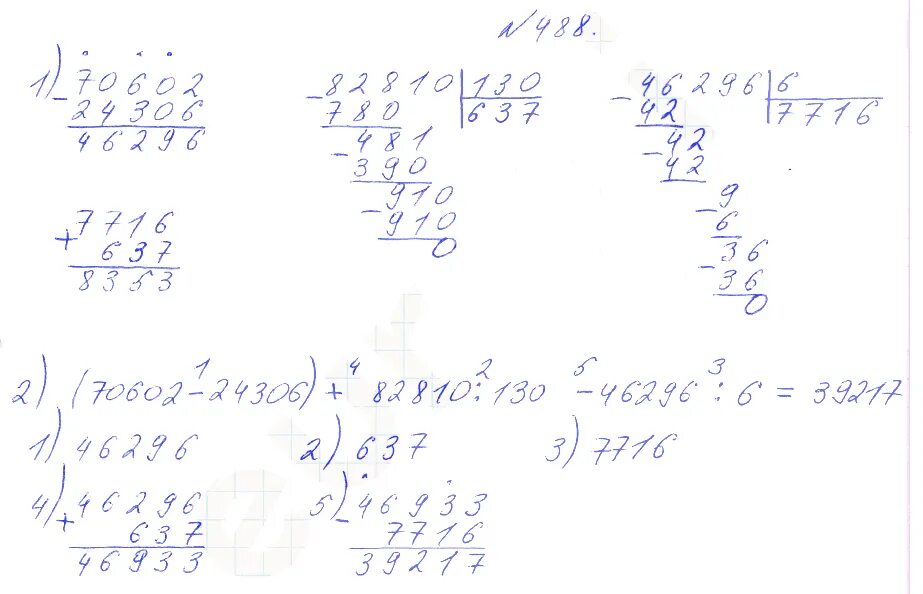 № 488.
1) 70602
- 24306
46296
- 82810 | 130
780 | 637
- 481
390
- 910
910
0
- 46296 | 6
42 | 7716
- 42
42
- 9
6
- 36
36
0
7716
+ 637
8353
2) (70602 - 24306) + 82810 : 130 - 46296 : 6 = 39217
1 4 2 5 3
1) 46296 2) 637 3) 7716
4) 46296
+ 637
46933
5) - 46933
7716
39217